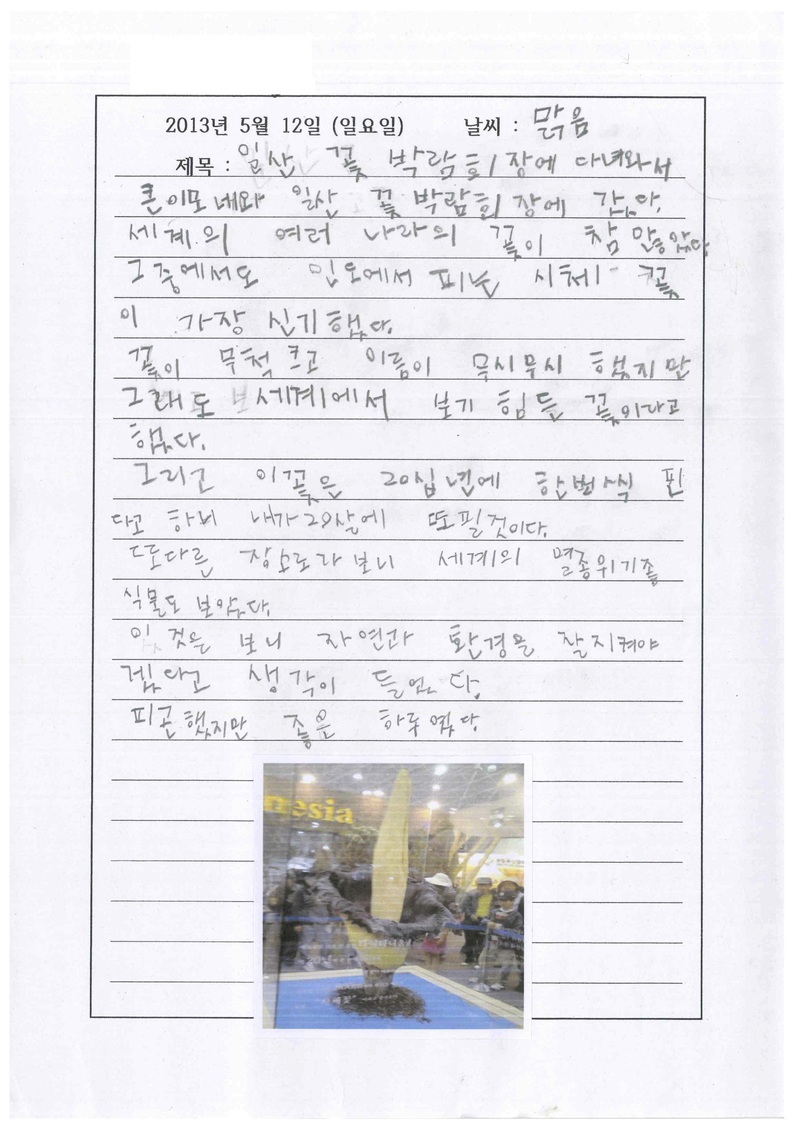 2013년 5월 12일 (일요일) 날씨 : 맑음
제목 : 일산 꽃 박람회장에 다녀와서
큰이모네와 일산 꽃박람회장에 갔다.
세계의 여러 나라의 꽃이 참 많았다
그중에서도 인도에서 피는 시체 꽃
이 가장 신기했다.
꽃이 무척 크고 이름이 무시무시 했지만
그래도 세계에서 보기 힘든 꽃이라고
했다.
그리고 이꽃은 20십년에 한번식 핀
다고 하니 내가 28살에 또필것이다.
또다른 장소로가 보니 세계의 멸종위기종
식물도 보았다.
것을 보니 자연과 환경을 잘지켜야
겠다고 생각이 들었다.
피곤했지만 좋은 하루였다
nesia